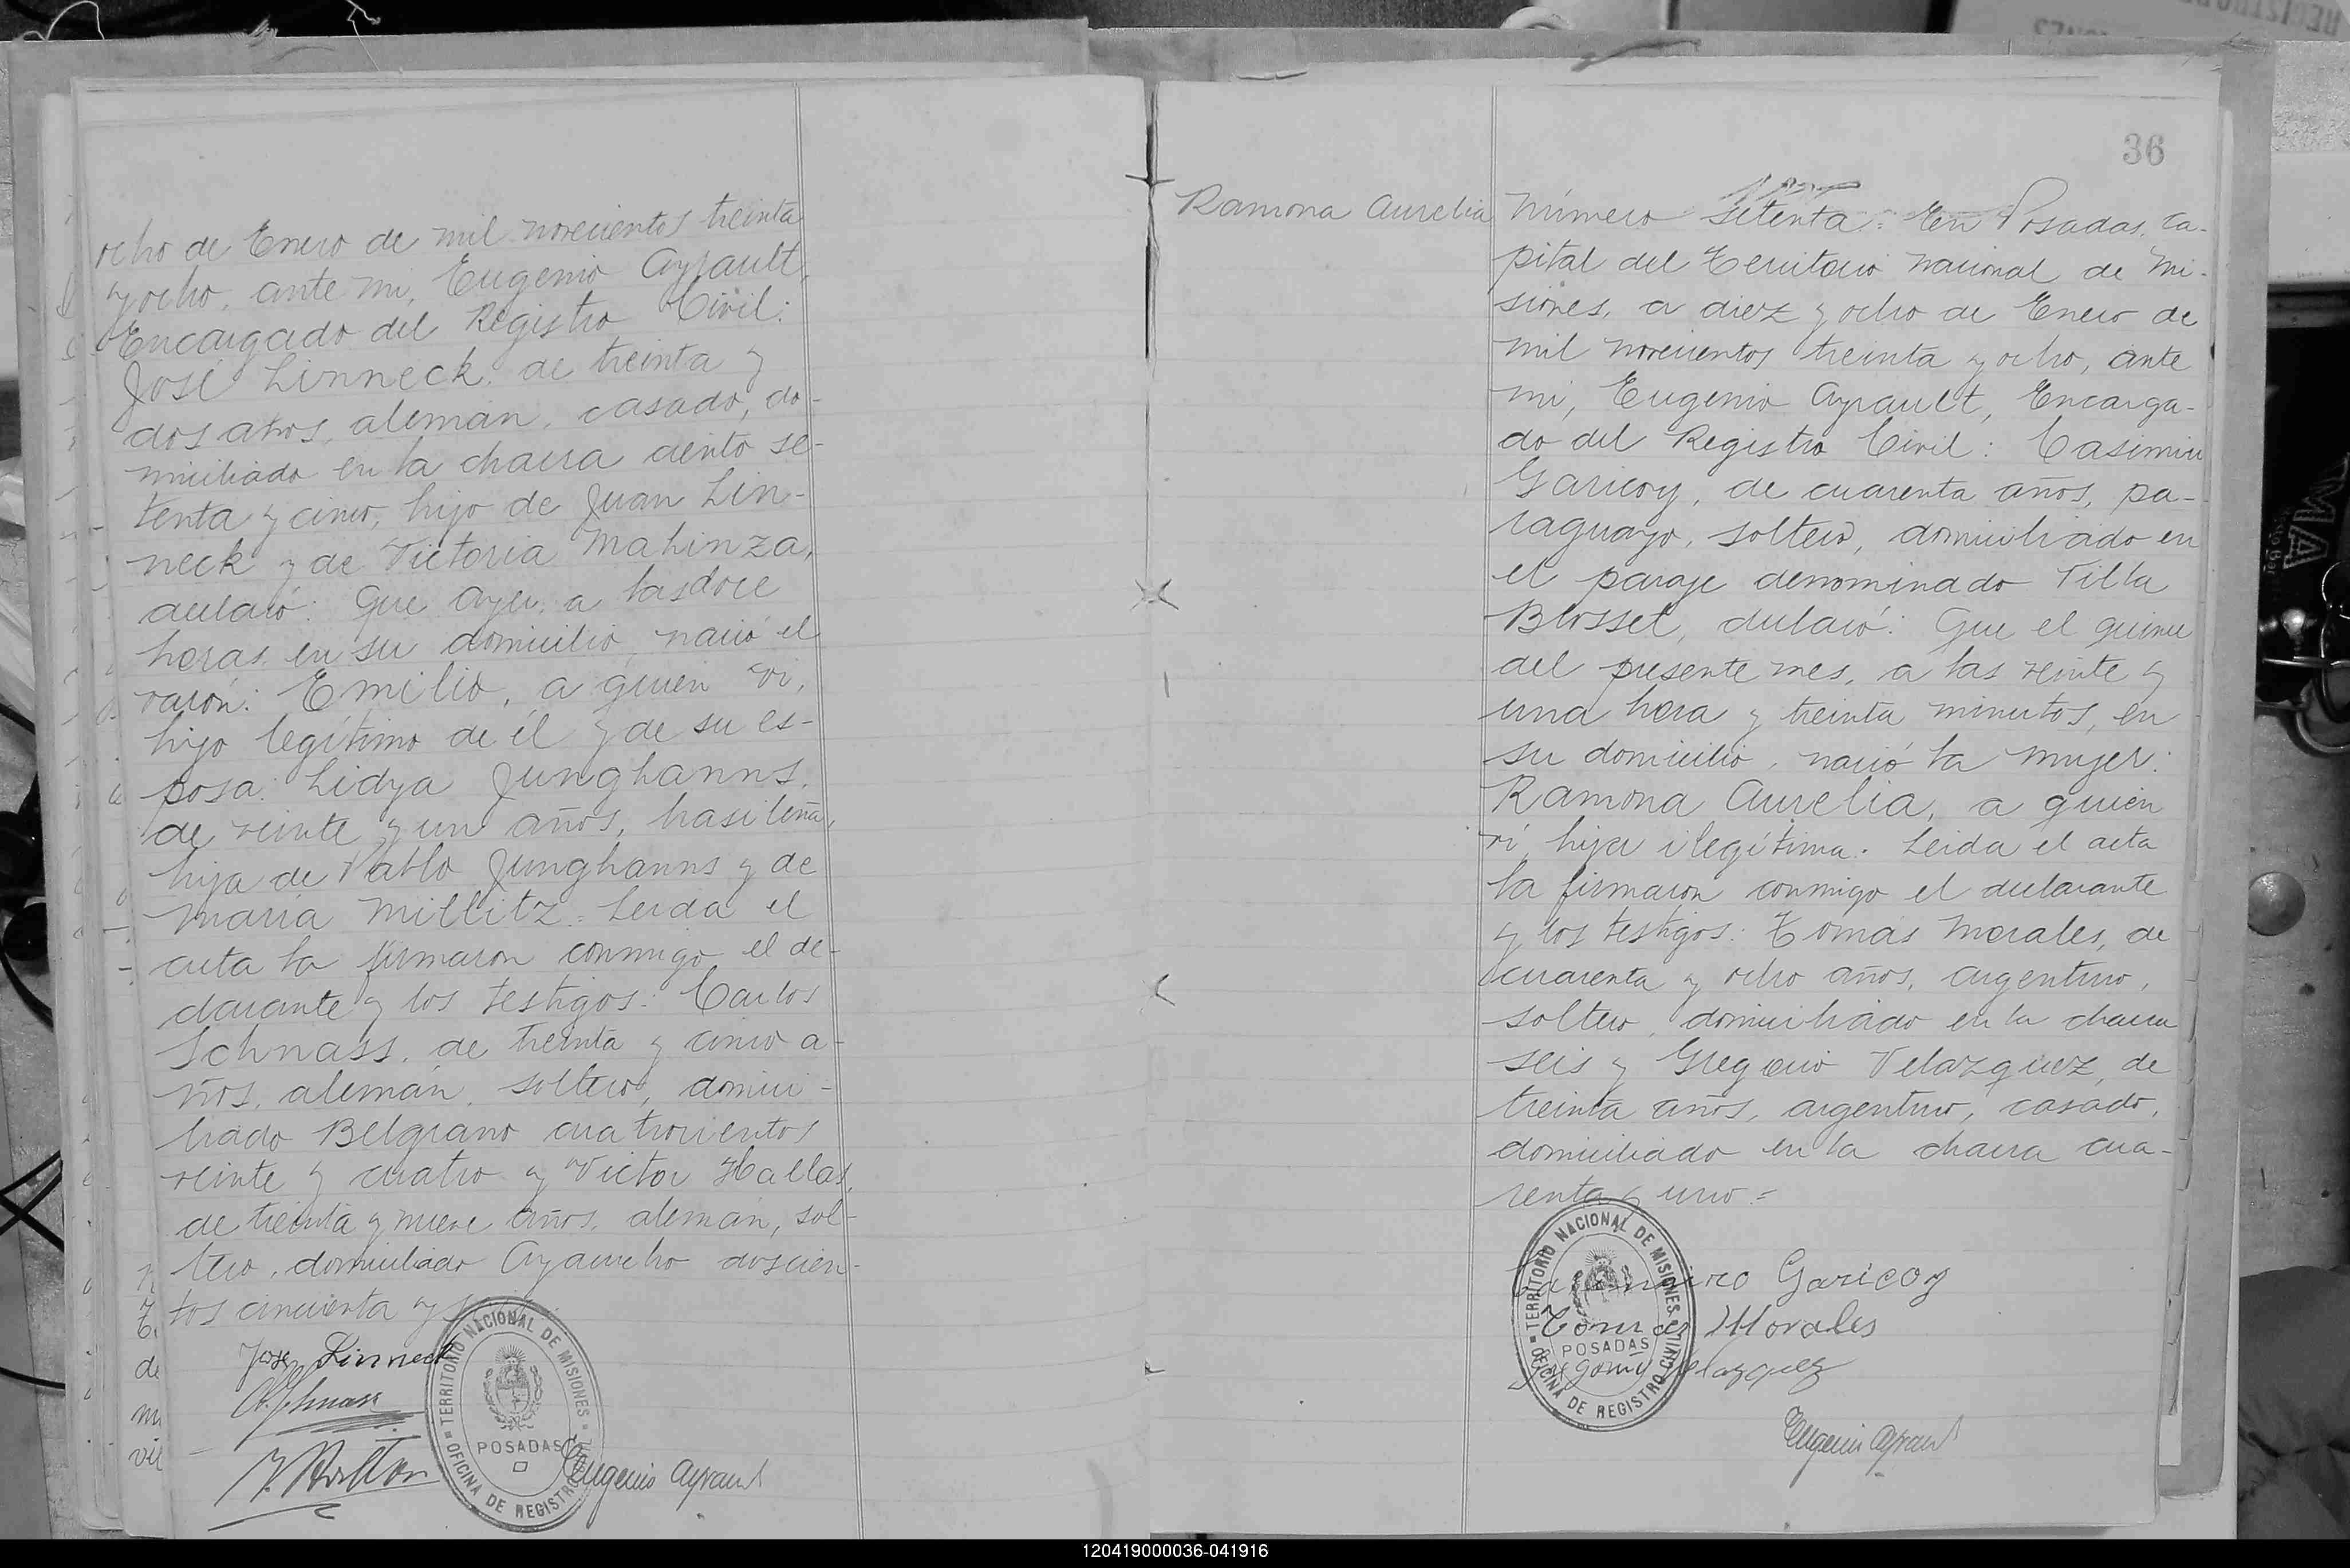 ocho de Enero de mil novecientos treinta
y ocho, ante mi, Eugenio Ayrault,
Encargado del Registro Civil:
José Linneck, de treinta y
dos años, alemán, casado, do-
miciliado en la chacra ciento se-
tenta y cinco, hijo de Juan Lin-
neck y de Victoria Mahinza,
declaró: Que ayer, a las doce
horas, en su domicilio, nació el
varón: Emilio, a quien vi,
hijo legítimo de él y de su es-
posa: Lidya Junghanns,
de veinte y un años, brasileña,
hija de Pablo Junghanns y de
María Millitz = Leida el
acta la firmaron conmigo el de-
clarante y los testigos: Carlos
Schnass, de treinta y cinco a-
ños, alemán, soltero, domici-
liado Belgrano cuatrocientos
veinte y cuatro y Victor Hallas,
de treinta y nueve años, alemán, sol-
tero, domiciliado Ayacucho doscien-
tos cincuenta y
José Linneck
C. Schnass
Eugenio Ayrault
TERRITORIO NACIONAL DE MISIONES
POSADAS
OFICINA DE REGISTRO CIVIL
36
Ramona Aurelia
Número setenta: En Posadas, ca-
pital del Territorio Nacional de Mi-
siones, a diez y ocho de Enero de
mil novecientos treinta y ocho, ante
mi, Eugenio Ayrault, Encarga-
do del Registro Civil: Casimiro
Garicoy, de cuarenta años, pa-
raguayo, soltero, domiciliado en
el paraje denominado Villa
Blosset, declaró: Que el quince
del presente mes, a las veinte y
una hora y treinta minutos, en
su domicilio, nació la mujer:
Ramona Aurelia, a quien
vi, hija ilegítima. Leida el acta
la firmaron conmigo el declarante
y los testigos: Tomás Morales, de
cuarenta y ocho años, argentino,
soltero, domiciliado en la chacra
seis y Gregorio Velazquez, de
treinta años, argentino, casado,
domiciliado en la chacra cua-
renta y uno =
Casimiro Garicoy
Tomas Morales
Gregorio Velazquez
Eugenio Ayrault
TERRITORIO NACIONAL DE MISIONES
POSADAS
OFICINA DE REGISTRO CIVIL
120419000036-041916